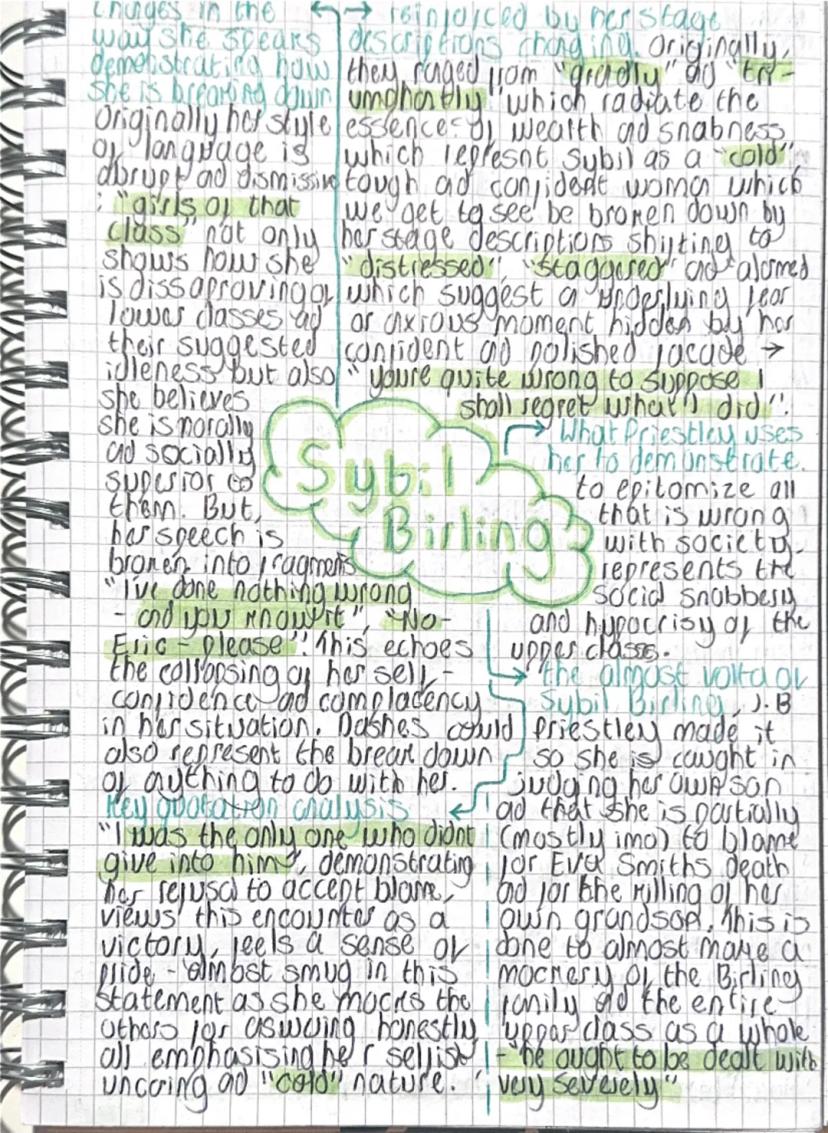 changes in the
way she speaks
demonstrating how
she is breaking down
Originally her style
of language is
abrupt ad dismissive
: "girls of that
class" not only
shows how she
is dissaproving of
lower classes ad
their suggested
idleness but also
she believes
she is morally
ad socially
superior to
them. But,
her speech is
broken into fragments
"I've done nothing wrong
- and you know it", "No-
Eric - please". This echoes
the collapsing of her self-
confidence ad complacency
in her situation. Dashes could
also represent the break down
of anything to do with her.
→ reinforced by her stage
descriptions changing. Originally,
they ranged from "grandly" ad "tri-
umphantly" which radiate the
essence of wealth ad snabness
which represnt Sybil as a "cold"
tough ad confident woman which
we get to see be broken down by
her stage descriptions shifting to
"distressed", "staggered" ad "alarmed
which suggest a underlying fear
or anxious moment hidden by her
confident ad polished facade →
"youre quite wrong to suppose I
shall regret what I did".
Sybil
Birling
→ What Priestley uses
her to demonstrate.
to epitomize all
that is wrong
with society.
represents the
social snobbery
and hypocrisy of the
upper class.
→ the almost volta of
Sybil Birling, J.B
Priestley made it
so she is caught in
judging her own son
ad that she is partially
(mostly imo) to blame
for Eva Smiths death
ad for the killing of her
own grandson. This is
done to almost make a
mockery of the Birling
family ad the entire
upper class as a whole
- "he ought to be dealt with
very severely"
Key quotation analysis
"I was the only one who didnt
give into him", demonstrating
her refusal to accept blame,
views this encounter as a
victory, feels a sense of
pride - almost smug in this
statement as she mocks the
others for answering honestly
all emphasising her selfish
uncaring ad "cold" nature.